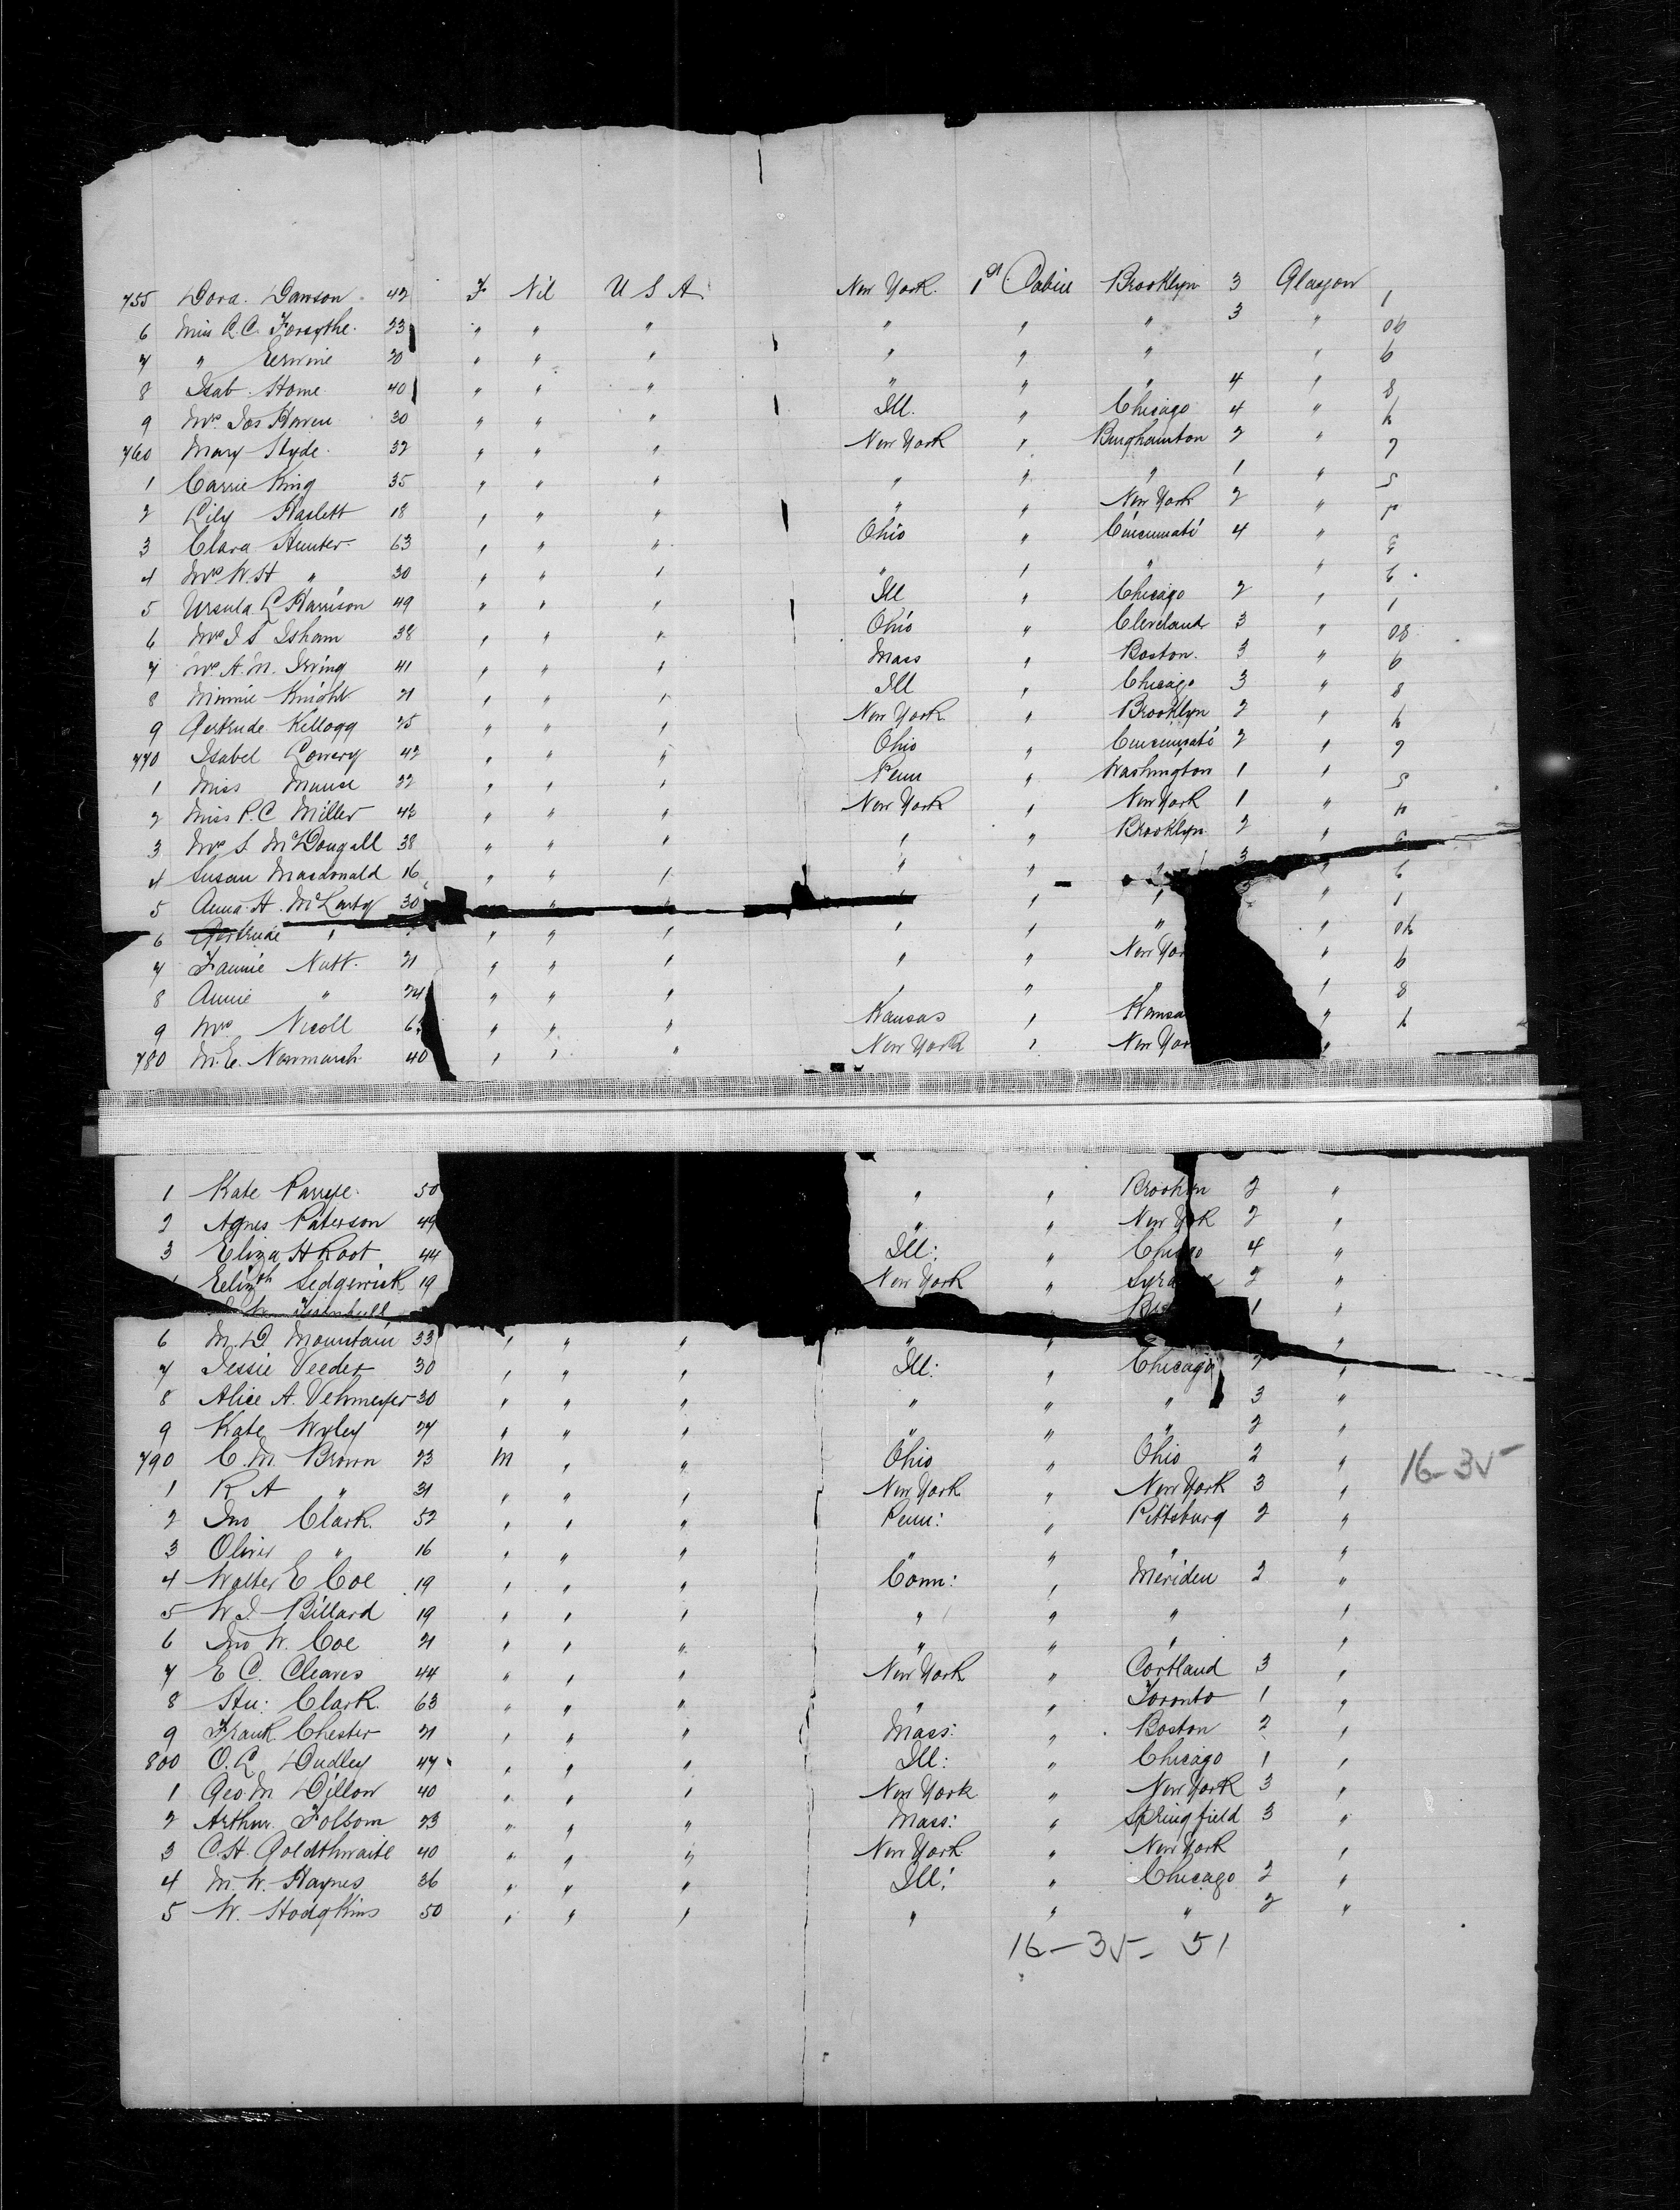 755 Dora Dawson 42 F Nil U S A New York 1st Cabin Brooklyn 3 Glasgow
6 Miss A.C. Forsythe 23 " " " " " " 3 "
7 " Eerwine 20 " " " " " " "
8 Isab Home 40 " " " " " " 4 "
9 Mrs Jos Haven 30 " " " Ill. " Chicago 4 "
760 Mary Hyde 32 " " " New York " Binghamton 2 "
1 Carrie King 35 " " " " " " 1 "
2 Lily Haslett 18 " " " " " New York 2 "
3 Clara Hunter 63 " " " Ohio " Cincinnati 4 "
4 Mrs W.H " 30 " " " " " " "
5 Ursula L Harrison 49 " " " Ill " Chicago 2 "
6 Mrs J S Isham 38 " " " Ohio " Cleveland 3 "
7 Mrs A.M. Irving 41 " " " Mass " Boston. 3 "
8 Minnie Knight 21 " " " Ill " Chicago 3 "
9 Gertrude Kellogg 25 " " " New York " Brooklyn 2 "
770 Isabel Lowery 42 " " " Ohio " Cincinnati 2 "
1 Miss Munse 22 " " " Penn " Washington 1 "
2 Miss P.C Miller 42 " " " New York " New York 1 "
3 Mrs S. McDougall 38 " " " " " Brooklyn 2 "
4 Susan Macdonald 16 " " " " " " 3 "
5 Anna H. McLarty 30 " " " " " " "
6 Gertrude " " " " " " " "
7 Fannie Nutt. 21 " " " " " New Yor "
8 Annie " 24 " " " " " " "
9 Mrs Nicoll 6 " " " Kansas " Kansa "
780 M.E. Newmarch 40 " " " New York " New Yor "
1 Kate 50 " " Brooklyn 2 "
2 Agnes Paterson 49 " " New York 2 "
3 Eliza H Root 44 Ill: " Chicago 4 "
Elizth Sedgwick 19 New York " Syra 2 "
W. Turnbull 1 "
6 M. D Mountain 33 " " " " " "
7 Jessie Veeder 30 " " " Ill: " Chicago 2 "
8 Alice A. Vehmeyer 30 " " " " " " 3 "
9 Kate Wyley 27 " " " " " " 2 "
790 C. M. Brown 23 M " " Ohio " Ohio 2 " 16-35
1 R A " 31 " " " New York " New York 3 "
2 Jno Clark. 52 " " " Penn: " Pittsburg 2 "
3 Oliver " 16 " " " " " " "
4 Walter E Coe 19 " " " Conn: " Meriden 2 "
5 W J Billard 19 " " " " " " "
6 Jno W. Coe 21 " " " " " " "
7 E C. Cleaves 44 " " " New York " Cortland 3 "
8 Stu: Clark. 63 " " " " " Toronto 1 "
9 Frank Chester 21 " " " Mass: " Boston 2 "
800 O. L Dudley 47 " " " Ill: " Chicago 1 "
1 Geo. M Dillow 40 " " " New York " New York 3 "
2 Arthur Folsom 23 " " " Mass: " Springfield 3 "
3 C.H. Goldthwaite 40 " " " New York " New York "
4 M. W. Haynes 36 " " " Ill: " Chicago 2 "
5 W. Hodgkins 50 " " " " " " 2 "
16-35- 51